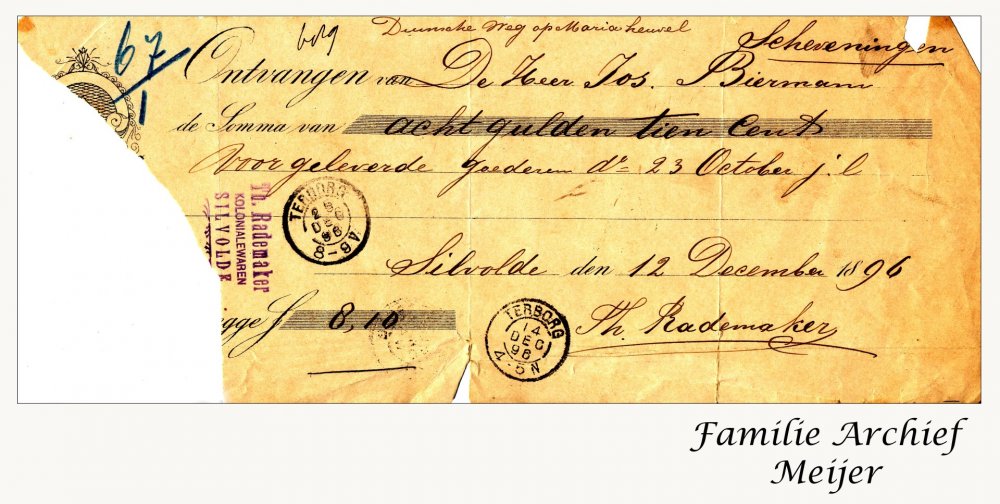 67/1
Scheveningen
Ontvangen van De Heer Jos. Biermann
de Somma van acht gulden tien cent
Voor geleverde goederen dr 23 October j.l
Th. Rademaker
KOLONIALEWAREN
SILVOLDE
TERBORG
DEC
96
8-9V
Silvolde den 12 December 1896
igge f 8,10
TERBORG
14
DEC
96
4-5N
Th. Rademaker
Familie Archief
Meijer